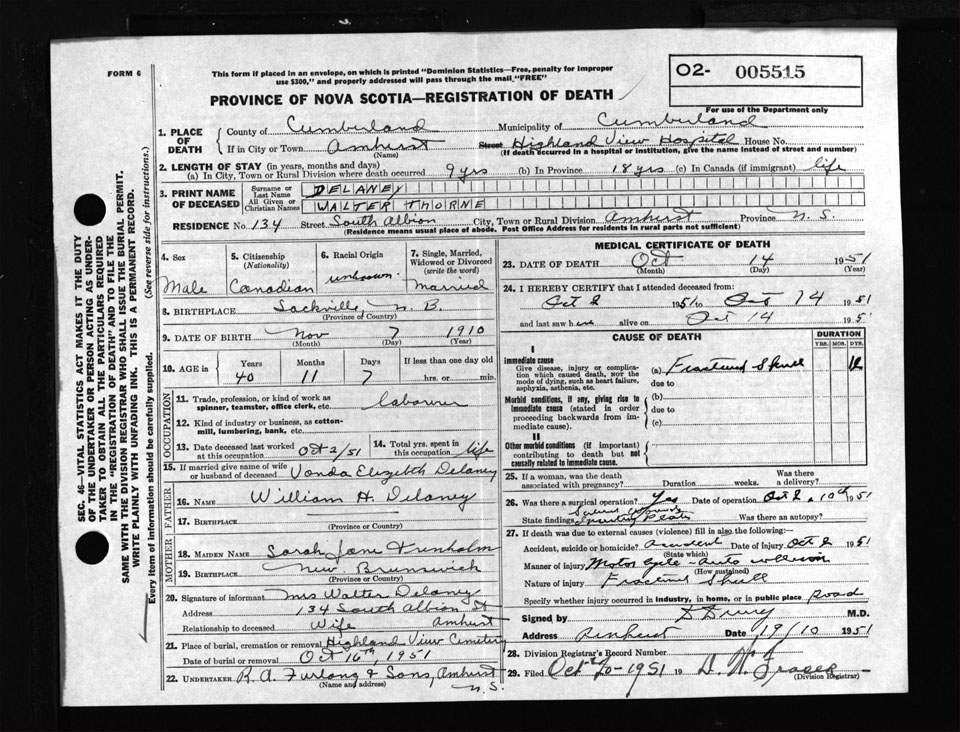 FORM 6
This form if placed in an envelope, on which is printed "Dominion Statistics—Free, penalty for improper
use $300," and properly addressed will pass through the mail "FREE"
O2- 005515
For use of the Department only
PROVINCE OF NOVA SCOTIA—REGISTRATION OF DEATH
SEC. 46—VITAL STATISTICS ACT MAKES IT THE DUTY
OF THE UNDERTAKER OR PERSON ACTING AS UNDER-
TAKER TO OBTAIN ALL THE PARTICULARS REQUIRED
IN THE "REGISTRATION OF DEATH" AND TO FILE THE
SAME WITH THE DIVISION REGISTRAR WHO SHALL ISSUE THE BURIAL PERMIT.
WRITE PLAINLY WITH UNFADING INK. THIS IS A PERMANENT RECORD.
Every item of information should be carefully supplied. (See reverse side for instructions.)
1. PLACE OF DEATH
County of Cumberland Municipality of Cumberland
If in City or Town Amherst Street Highland View Hospital House No.
(Name) (If death occurred in a hospital or institution, give the name instead of street and number)
2. LENGTH OF STAY (in years, months and days)
(a) In City, Town or Rural Division where death occurred 9 yrs (b) In Province 18 yrs (c) In Canada (if immigrant) life
3. PRINT NAME OF DECEASED
Surname or Last Name DELANEY
All Given or Christian Names WALTER THORNE
RESIDENCE No. 134 Street South Albion City, Town or Rural Division Amherst Province N.S.
(Residence means usual place of abode. Post Office Address for residents in rural parts not sufficient)
4. Sex
Male
5. Citizenship (Nationality)
Canadian
6. Racial Origin
unknown
7. Single, Married, Widowed or Divorced (write the word)
Married
8. BIRTHPLACE Sackville, N.B.
(Province or Country)
9. DATE OF BIRTH Nov 7 1910
(Month) (Day) (Year)
10. AGE in Years Months Days If less than one day old
40 11 7 hrs. or min.
OCCUPATION
11. Trade, profession, or kind of work as
spinner, teamster, office clerk, etc. labourer
12. Kind of industry or business, as cotton-
mill, lumbering, bank, etc.
13. Date deceased last worked at this occupation Oct 2/51
14. Total yrs. spent in this occupation life
15. If married give name of wife or husband of deceased Vonda Elizebth Delaney
FATHER
16. NAME William H. Delaney
17. BIRTHPLACE
(Province or Country)
MOTHER
18. MAIDEN NAME Sarah Jane Trenholm
19. BIRTHPLACE New Brunswick
(Province or Country)
20. Signature of informant Mrs Walter Delaney
Address 134 South Albion St
Amherst
Relationship to deceased Wife
21. Place of burial, cremation or removal Highland View Cemetery
Date of burial or removal Oct 16th, 1951
22. UNDERTAKER R. A. Furlong & Sons, Amherst
(Name and address) N.S.
MEDICAL CERTIFICATE OF DEATH
23. DATE OF DEATH Oct 14 1951
(Month) (Day) (Year)
24. I HEREBY CERTIFY that I attended deceased from:
Oct 2 1951 to Oct 14 1951
and last saw h im alive on Oct 14 195
CAUSE OF DEATH
DURATION
YRS. MOS. DYS.
I
Immediate cause
Give disease, injury or complica-
tion which caused death, NOT the
mode of dying, such as heart failure,
asphyxia, asthenia, etc.
(a) Fractured Skull 12
due to
Morbid conditions, if any, giving rise to
immediate cause (stated in order
proceeding backwards from im-
mediate cause).
(b)
due to
(c)
II
Other morbid conditions (if important)
contributing to death but not
causally related to immediate cause.
25. If a woman, was the death
associated with pregnancy? Duration weeks. Was there a delivery?
26. Was there a surgical operation? Yes Date of operation Oct 2, 10th 1951
State findings Was there an autopsy?
27. If death was due to external causes (violence) fill in also the following:—
Accident, suicide or homicide? Accident Date of injury Oct 2 1951
(State which)
Manner of injury Motor Cycle - Auto collision
(How sustained)
Nature of injury Fractured Skull
Specify whether injury occurred in industry, in home, or in public place Road
Signed by M.D.
Address Amherst Date 19/10 1951
28. Division Registrar's Record Number
29. Filed Oct 20-1951 19
(Division Registrar)